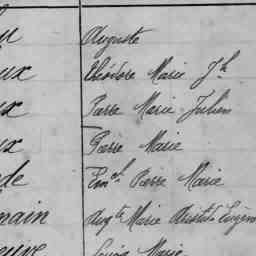 Auguste
ux Théodore Marie Jh
ux Pierre Marie Julien
ux Pierre Marie
de Emel Pierre Marie
main Augte Marie Aristide Eugène
euve Marie